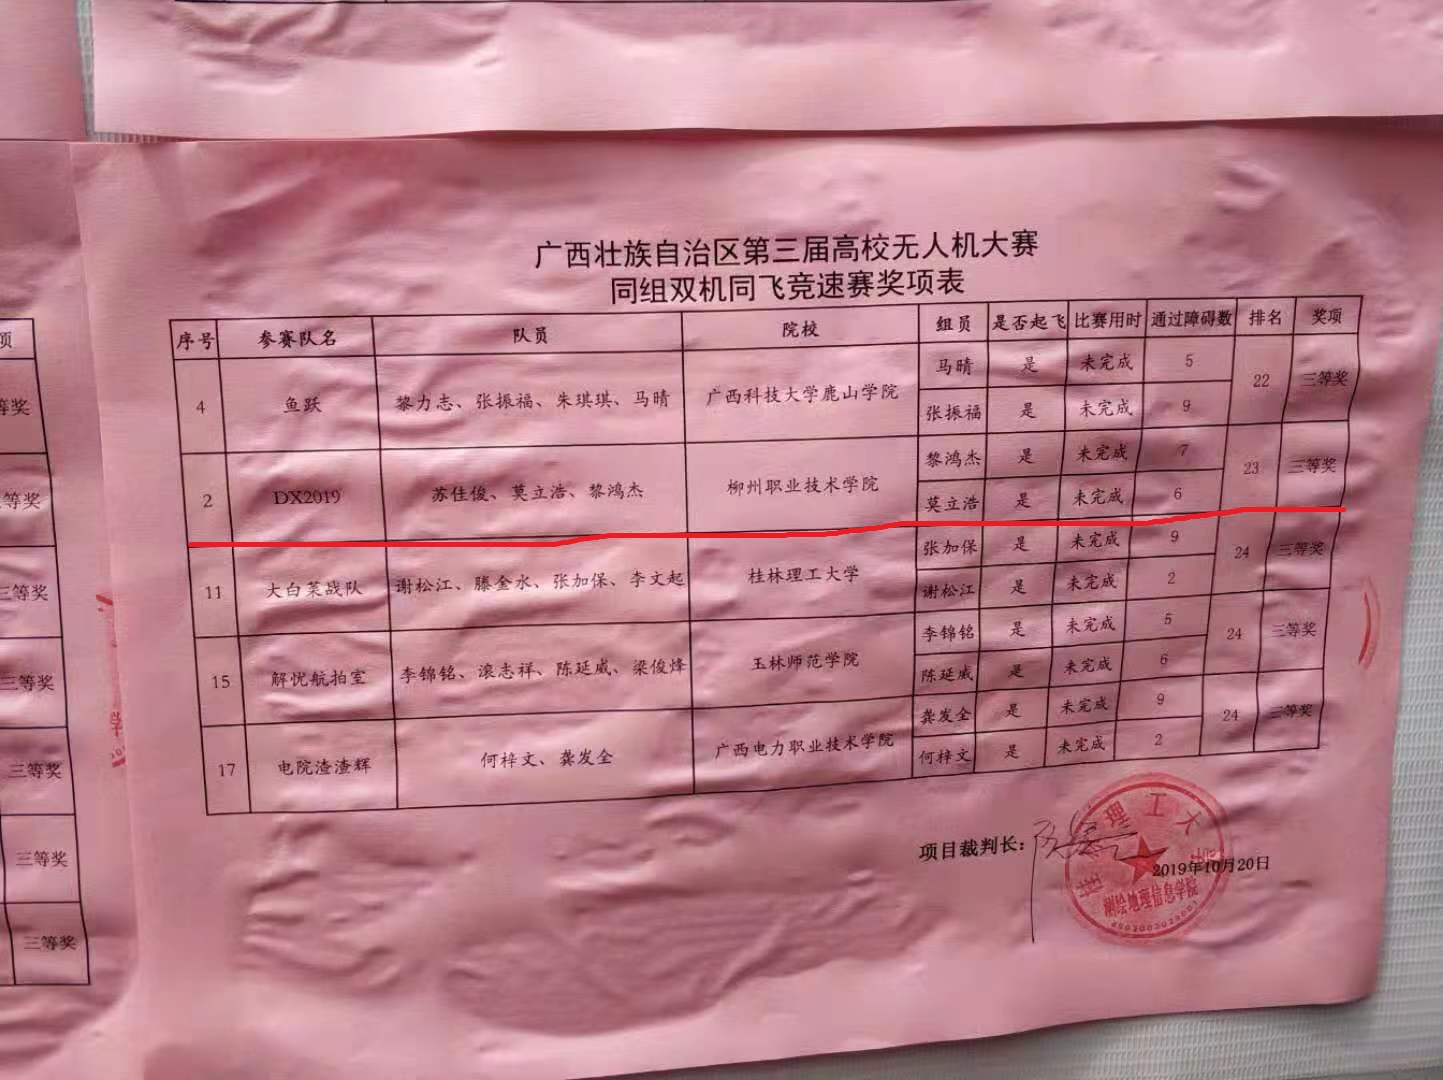 广西壮族自治区第三届高校无人机大赛
同组双机同飞竞速赛奖项表
序号 参赛队名 队员 院校 组员 是否起飞 比赛用时 通过障碍数 排名 奖项
4 鱼跃 黎力志、张振福、朱琪琪、马晴 广西科技大学鹿山学院 马晴 是 未完成 5 22 三等奖
张振福 是 未完成 9
2 DX2019 苏佳俊、莫立浩、黎鸿杰 柳州职业技术学院 黎鸿杰 是 未完成 7 23 三等奖
莫立浩 是 未完成 6
11 大白菜战队 谢松江、滕金水、张加保、李文起 桂林理工大学 张加保 是 未完成 9 24 三等奖
谢松江 是 未完成 2
15 解忧航拍室 李锦铭、滚志祥、陈延威、梁俊烽 玉林师范学院 李锦铭 是 未完成 5 24 三等奖
陈延威 是 未完成 6
17 电院渣渣辉 何梓文、龚发全 广西电力职业技术学院 龚发全 是 未完成 9 24 三等奖
何梓文 是 未完成 2
项目裁判长：
2019年10月20日
理工大学
测绘地理信息学院
项
等奖
三等奖
三等奖
三等奖
三等奖
三等奖
三等奖